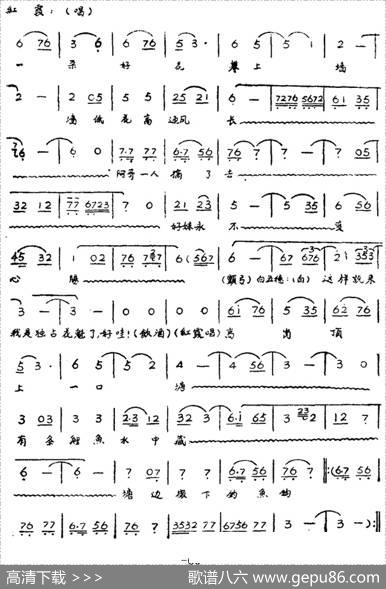 红霞：（唱）
6 76 | 3 6 | 6 76 | 5 3· | 6 5 | 5 1 | 2 —
一 朵 好 花 靠 上 墙
2 — | 2 05 | 5 5 | 25 21 | 6 — | 7276 5672 | 61 35
墙 低 花 高 迎风 长
76 — | 6 0 | 7·7 77 | 6·7 56 | 76 7 | 7 — | 7 05
阿哥一人 摘 了 去
32 12 | 77 6723 | 7 0 | 21 23 | 5 — | 5 35 | 6 56
好妹永 不 变
45 32 | 1 02 | 76 767 | 6 (567 | 6 — | 67 676 | 2 353
心 肠 白五魁：（白） 这样说来
3 — | 3 — | 0 0 | 0 0 | 61 76 | 5 35 | 62 76
我是独占花魁了，好哇！（饮酒）（红霞唱）高 岗 顶
5 3· | 6 5 | 5 2 | 4 — | 4 56 | 3 — | 3 0
上 一 口 塘
3 03 | 3 3 | 2·3 12 | 32 3 | 6·1 65 | 3 2 | 12 7
有 条 鲤 鱼 水 中 藏
6 — | 6 — | 7 07 | 7 7 | 6·7 56 | 76 7 |: (6·7 56
塘 边 撒 下 钓 鱼 钩
76 77 | 6·7 56 | 76 7 | 3532 77 | 6756 77 | 3 — | 3 —) :|
高清下载 >>> 歌谱八六 www.gepu86.com